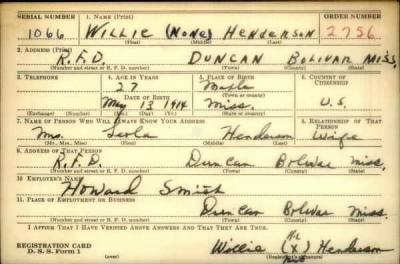 SERIAL NUMBER 1. NAME (Print) ORDER NUMBER
1066 WILLIE (NONE) HENDERSON 2756
(First) (Middle) (Last)
2. ADDRESS (Print)
R.F.D. DUNCAN BOLIVAR MISS.
(Number and street or R. F. D. number) (Town) (County) (State)
3. TELEPHONE 4. AGE IN YEARS 5. PLACE OF BIRTH 6. COUNTRY OF CITIZENSHIP
27
DATE OF BIRTH (Town or county)
May 13 1914 Miss. U.S.
(Exchange) (Number) (Mo.) (Day) (Yr.) (State or country)
7. NAME OF PERSON WHO WILL ALWAYS KNOW YOUR ADDRESS 8. RELATIONSHIP OF THAT PERSON
Mrs. Henderson Wife
(Mr., Mrs., Miss) (First) (Middle) (Last)
9. ADDRESS OF THAT PERSON
R.F.D. Duncan Bolivar Miss.
(Number and street or R. F. D. number) (Town) (County) (State)
10. EMPLOYER'S NAME
Howard Smith
11. PLACE OF EMPLOYMENT OR BUSINESS
Duncan Bolivar Miss.
(Number and street or R. F. D. number) (Town) (County) (State)
I AFFIRM THAT I HAVE VERIFIED ABOVE ANSWERS AND THAT THEY ARE TRUE.
REGISTRATION CARD
D. S. S. Form 1 Willie (X) Henderson
(Registrant's signature)